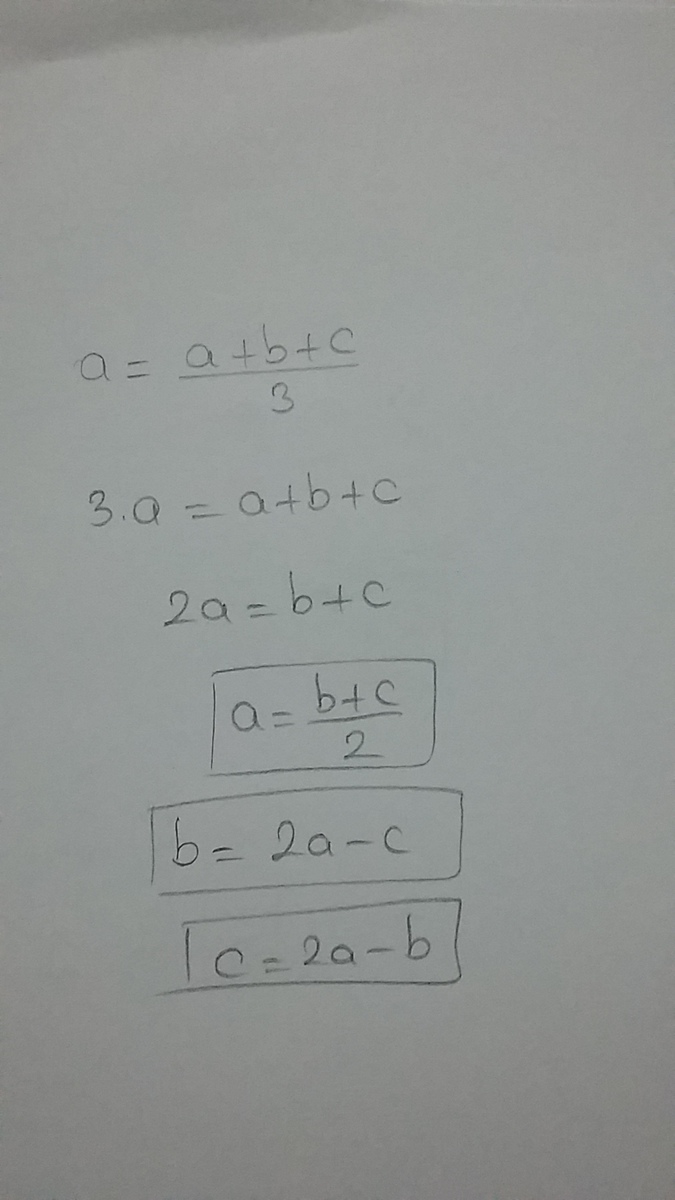 a = a+b+c / 3
3.a = a+b+c
2a = b+c
a = b+c / 2
b = 2a-c
c = 2a-b